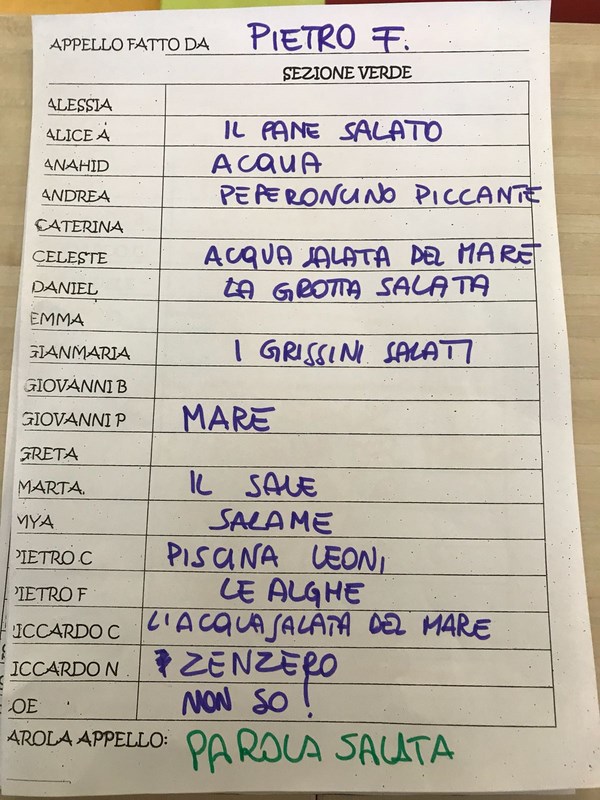 APPELLO FATTO DA PIETRO F.
SEZIONE VERDE
ALESSIA
ALICE A IL PANE SALATO
ANAHID ACQUA
ANDREA PEPERONCINO PICCANTE
CATERINA
CELESTE ACQUA SALATA DEL MARE
DANIEL LA GROTTA SALATA
EMMA
GIANMARIA I GRISSINI SALATI
GIOVANNI B
GIOVANNI P MARE
GRETA
MARTA. IL SALE
MYA SALAME
PIETRO C PISCINA LEONI
PIETRO F LE ALGHE
ICCARDO C L'ACQUA SALATA DEL MARE
ICCARDO N ZENZERO
OE NON SO!
AROLA APPELLO: PAROLA SALATA